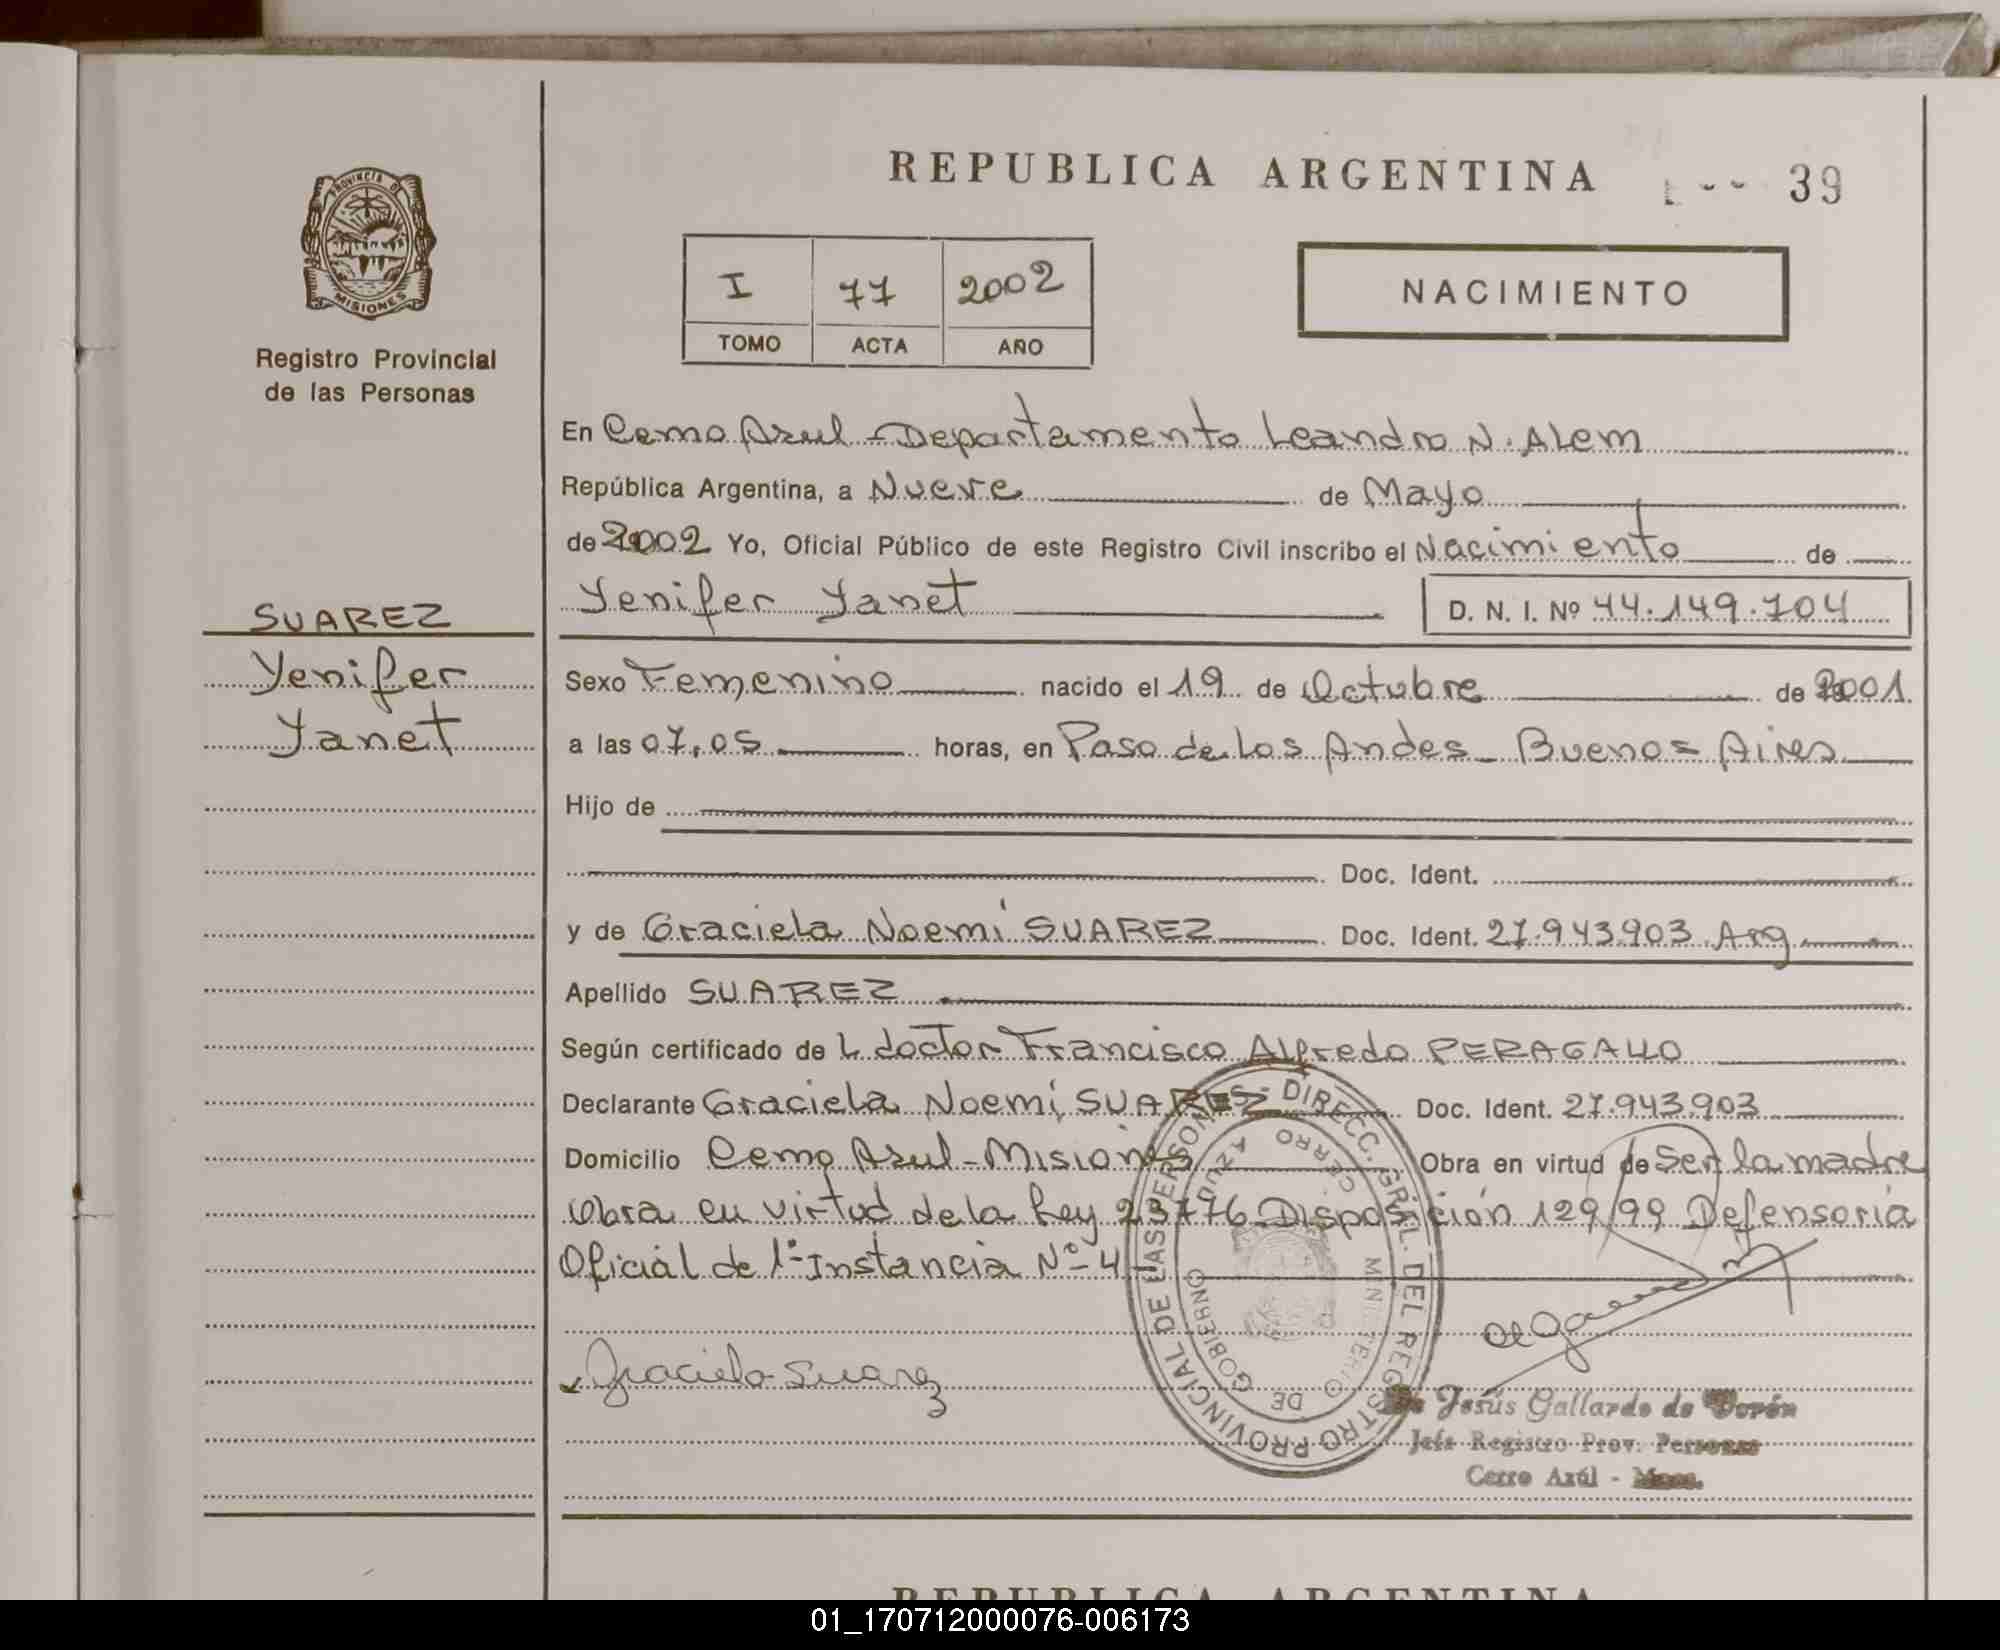 REPUBLICA ARGENTINA
39
PROVINCIA DE
MISIONES
Registro Provincial
de las Personas
I 77 2002
TOMO ACTA AÑO
NACIMIENTO
En Cerro Azul - Departamento Leandro N. Alem
República Argentina, a Nueve de Mayo
de 2002 Yo, Oficial Público de este Registro Civil inscribo el Nacimiento de
Yenifer Yanet D. N. I. Nº 44.149.704
SUAREZ
Yenifer
Yanet
Sexo Femenino nacido el 19 de Octubre de 2001
a las 07,05 horas, en Paso de Los Andes - Buenos Aires
Hijo de
Doc. Ident.
y de Graciela Noemí SUAREZ Doc. Ident. 27.943.903 Arg.
Apellido SUAREZ
Según certificado de L doctor Francisco Alfredo PERAGALLO
Declarante Graciela Noemí SUAREZ Doc. Ident. 27.943.903
Domicilio Cerro Azul - Misiones Obra en virtud de Ser la madre
Obra en virtud de la Ley 23776 Disposición 129/99 Defensoria
Oficial de 1ª Instancia Nº 4
Graciela Suarez
DIRECC. GRAL. DEL REGISTRO PROVINCIAL DE LAS PERSONAS
CERRO AZUL
MINISTERIO DE GOBIERNO
Jesús Gallardo de
Jefe Registro Prov. Personas
Cerro Azúl - Mnes.
REPUBLICA ARGENTINA
01_170712000076-006173